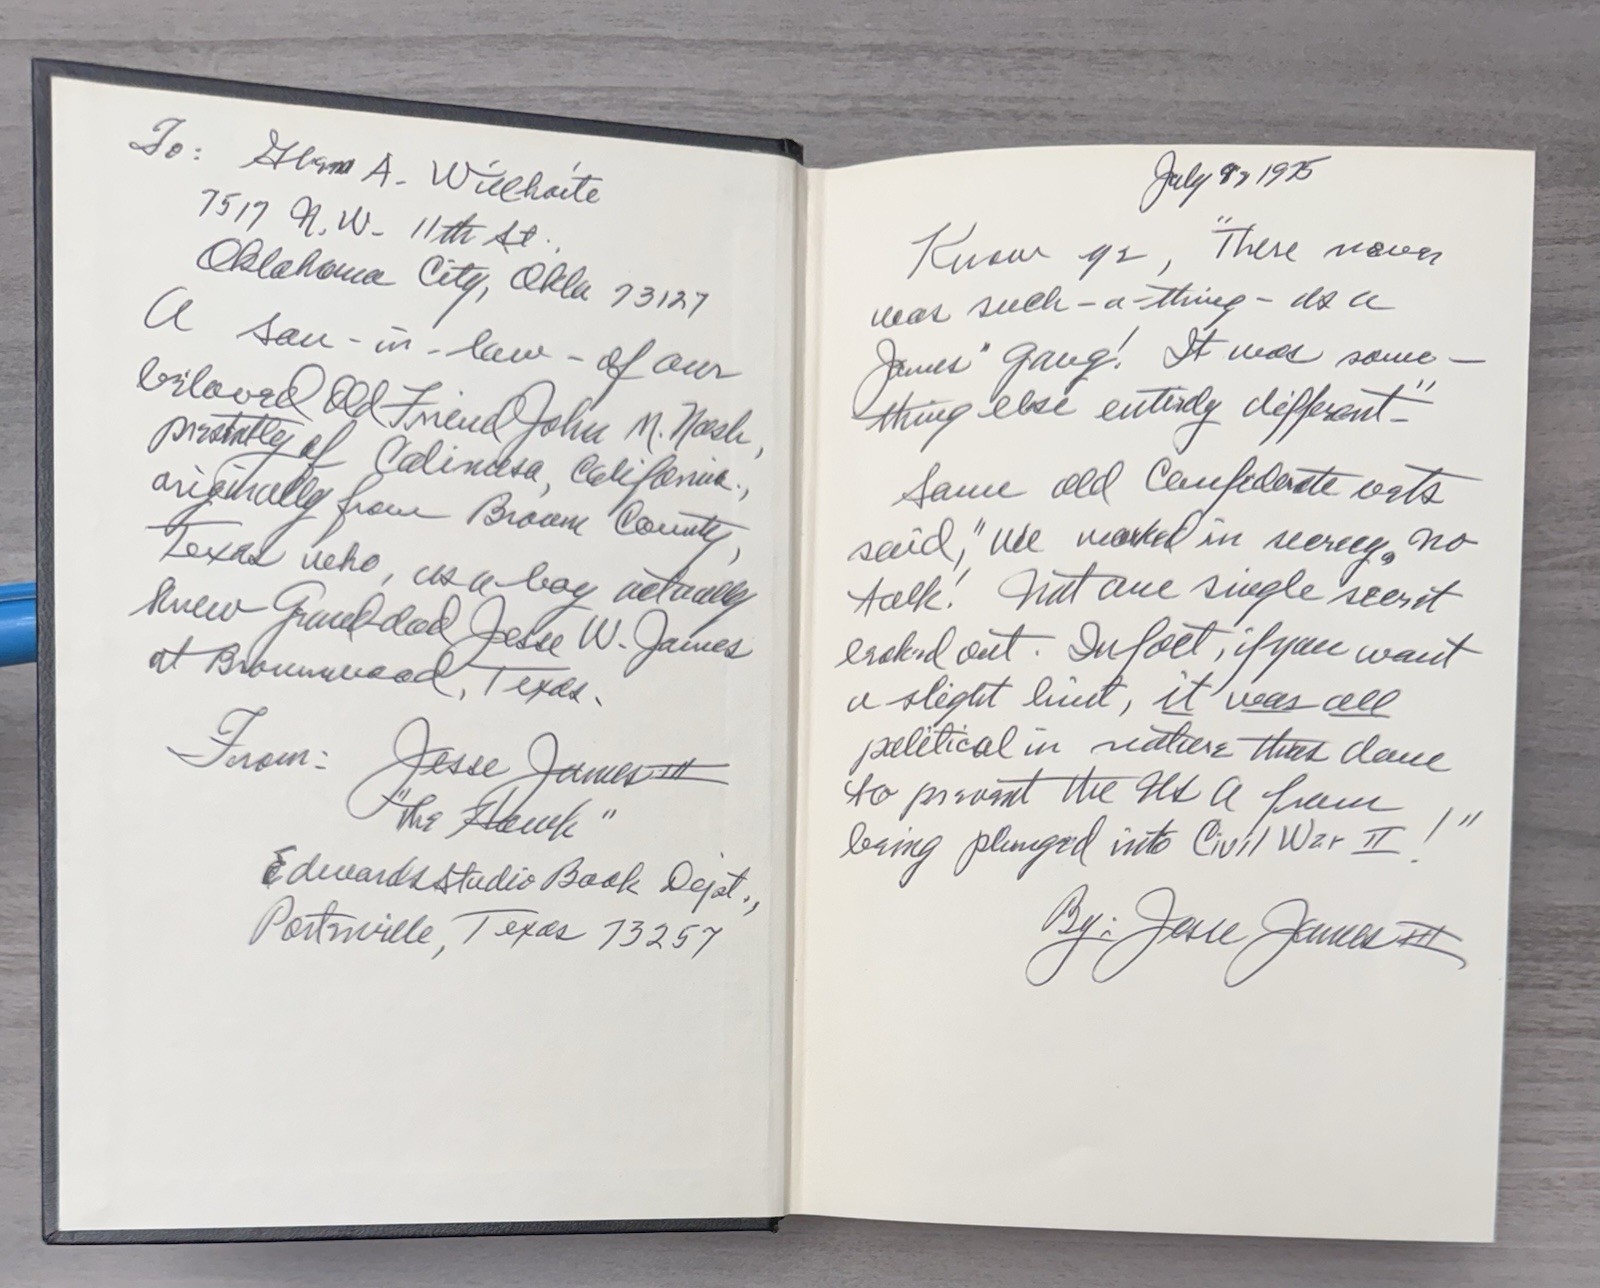 To: Glenn A. Willhoite
7517 N.W. 11th St.,
Oklahoma City, Okla 73127
A son-in-law-of our
beloved Old Friend John M. Nash,
presently of Calimesa, California.,
originally from Brown County,
Texas who, as a boy actually
knew Granddad Jesse W. James
at Brownwood, Texas.
From: Jesse James III
"The Hawk"
Edwards Studio Book Dept.,
Porterville, Texas 73257
July 1975
Know ye, "There never
was such-a-thing-as a
James" Gang! It was some-
thing else entirely different-"
Some old Confederate vets
said, "We worked in secrecy, no
talk! Not one single secret
leaked out. In fact, if you want
a slight hint, it was all
political in nature thus done
to prevent the US A from
being plunged into Civil War II!"
By: Jesse James III